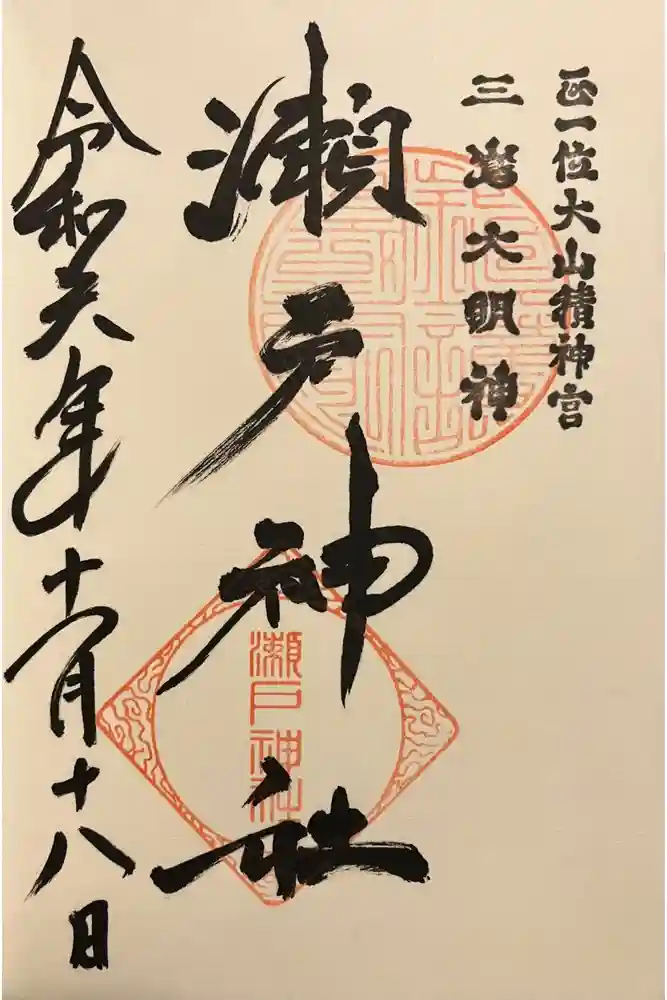 正一位大山積神宮
三嶌大明神
瀬戸神社
令和六年十一月十八日
瀬戸神社